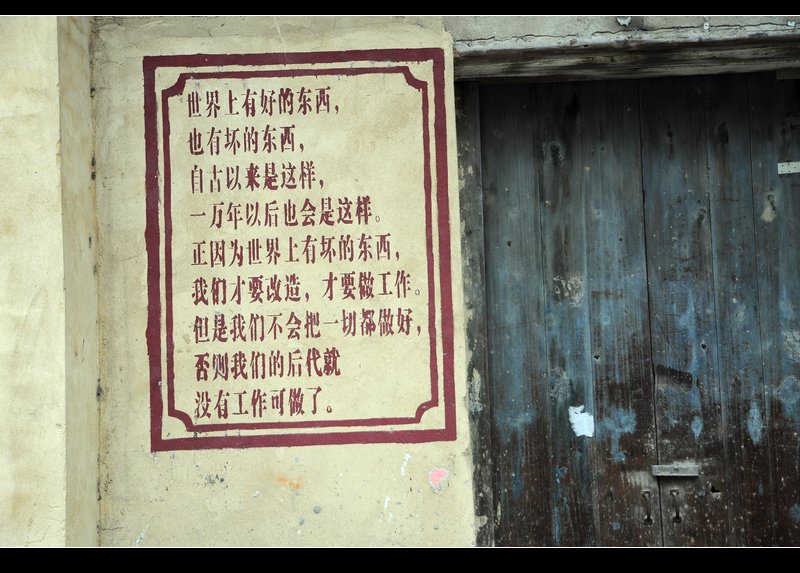 世界上有好的东西，
也有坏的东西，
自古以来是这样，
一万年以后也会是这样。
正因为世界上有坏的东西，
我们才要改造，才要做工作。
但是我们不会把一切都做好，
否则我们的后代就
没有工作可做了。